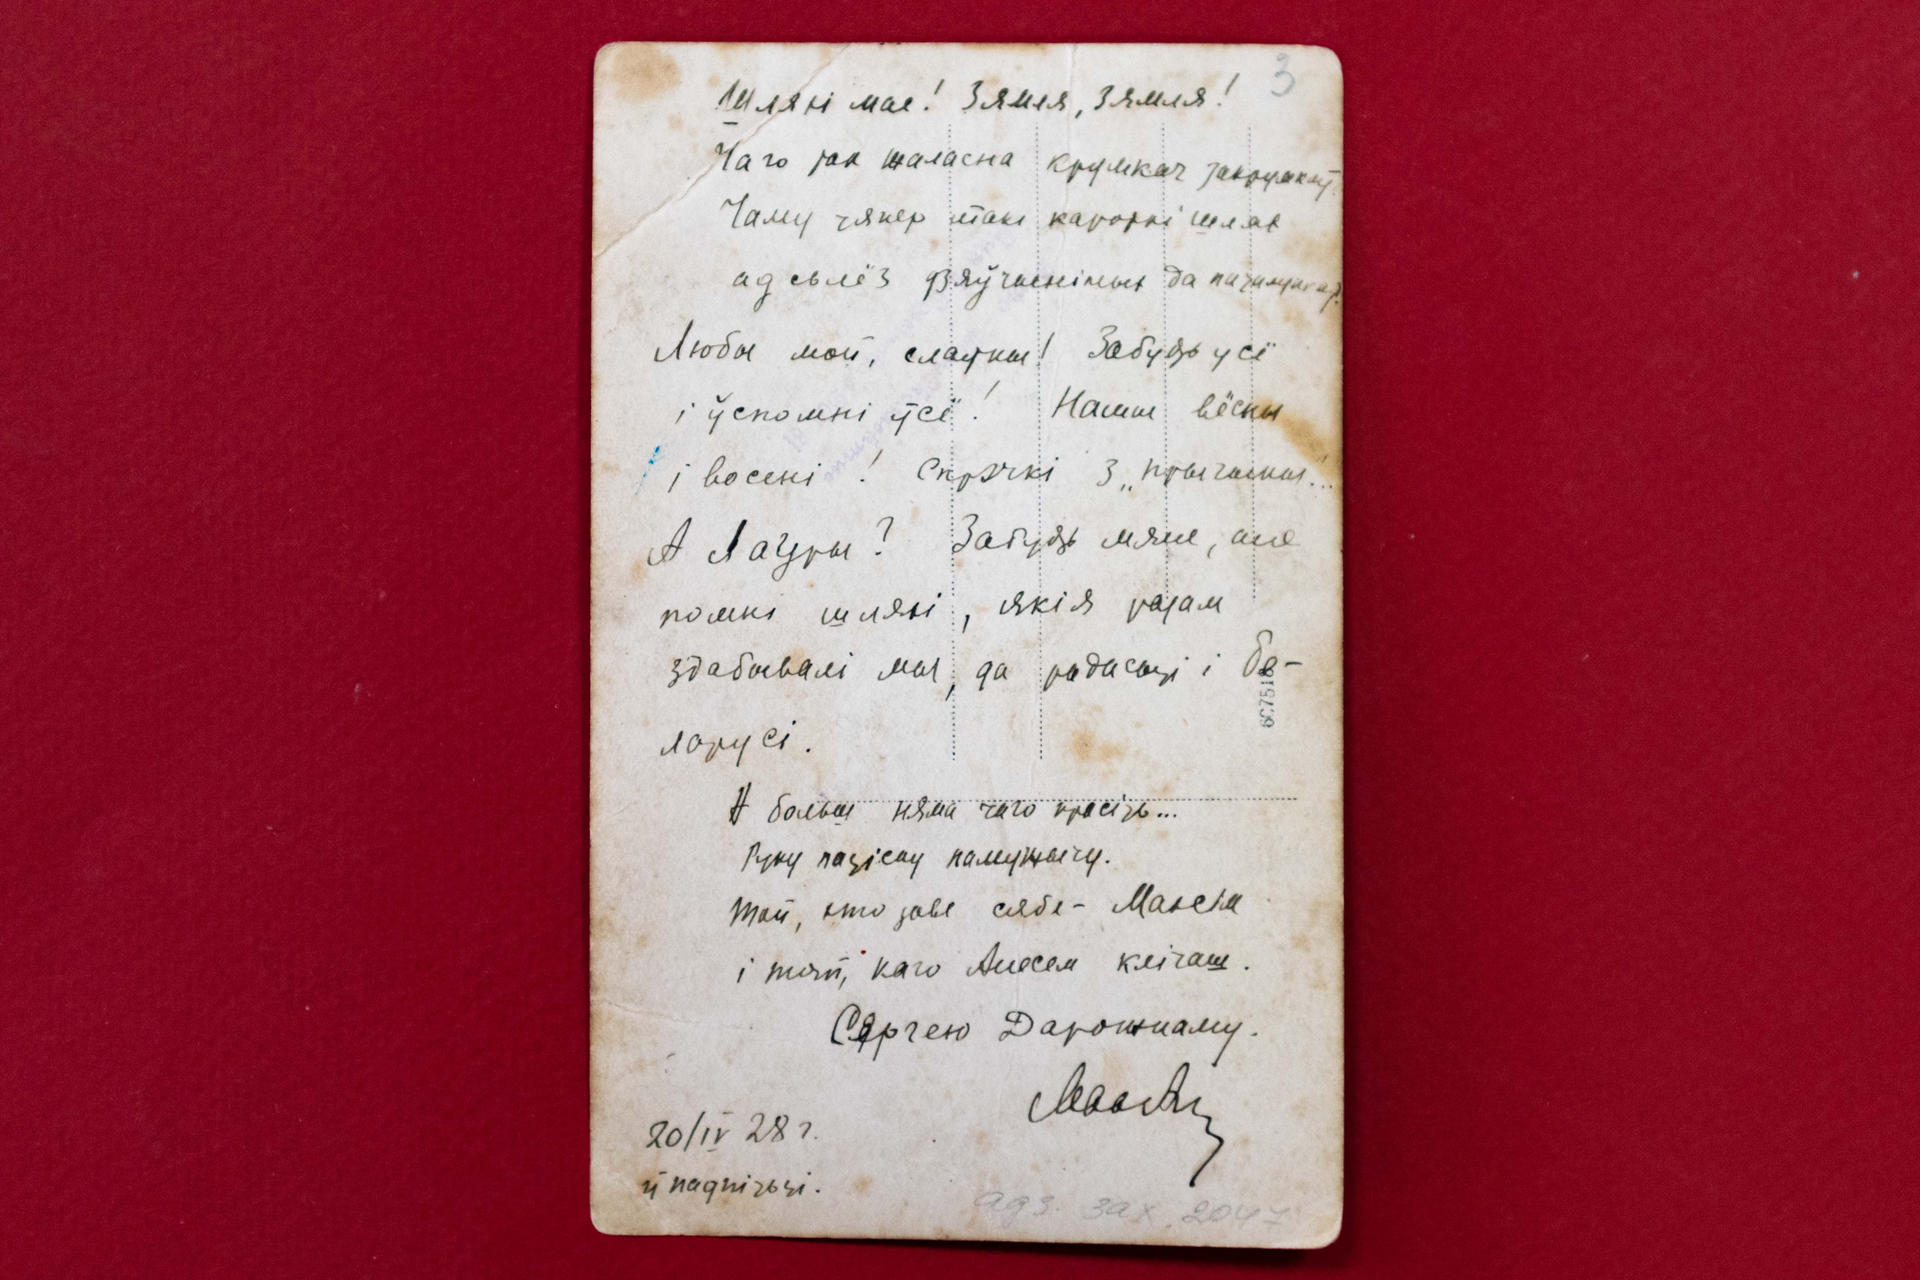 3
Шляхі мае! Зямля, Зямля!
Чаго так жаласна крумкач закрумкаў
Чаму цяпер такі кароткі шлях
ад сьлёз дзяўчыніных да пацалункаў?
Любы мой, слаўны! Забудзь усё
і ўспомні ўсё! Нашы вёсны
і восені! Скрэчкі з „прыгожым!..
А Лагуры? Забудзь мяне, але
помні шляхі, якія разам
здабывалі мы, да радасьці і Бе-
ларусі.
А больш няма чаго прасіць...
Руку паціскаю памужычу.
Той, хто заве сябе – Максім
і той, каго Алесем клічаш.
Сяргею Дарожнаму.
20/IV 28 г.
ў падпільлі.
адз. зах. 2047